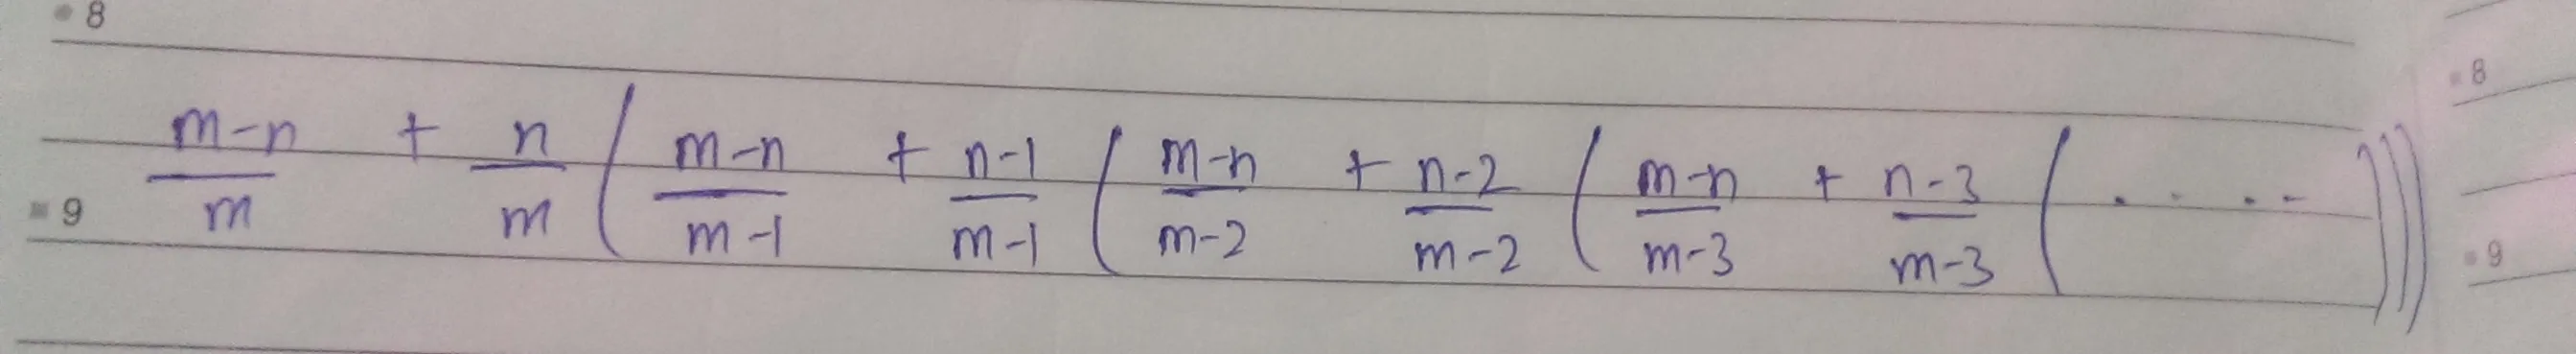 8
m-n/m + n/m ( m-n/m-1 + n-1/m-1 ( m-n/m-2 + n-2/m-2 ( m-n/m-3 + n-3/m-3 ( . . . . ) ) )
9
8
9